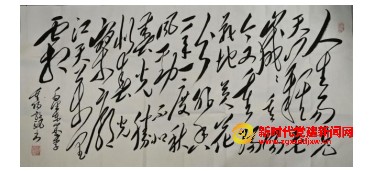 人生易老
天难老岁
岁重阳
今又重阳
战地黄花
分外香
一年一度秋
风劲不似
春光胜
似春光
寥廓
江天万里
霜
新时代党建新闻网